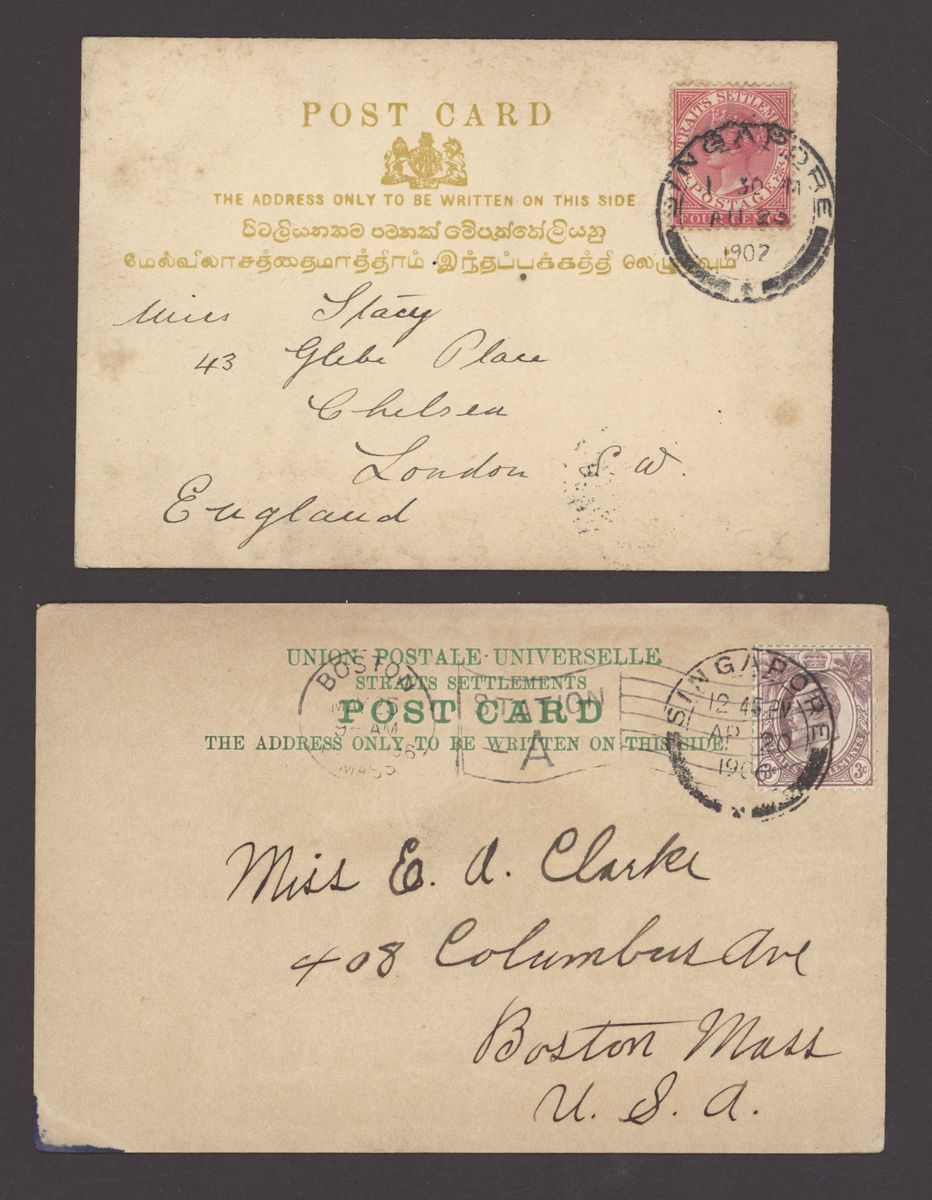 POST CARD
THE ADDRESS ONLY TO BE WRITTEN ON THIS SIDE
மேல்விலாசத்தைமாத்திரம் இந்தப்பக்கத்தி லெழுதவும்
STRAITS SETTLEMENTS
POSTAGE
FOUR CENTS
SINGAPORE
1 30 PM
AU 23
1902
Miss Stacey
43 Glebe Place
Chelsea
London S. W.
England
UNION POSTALE UNIVERSELLE
STRAITS SETTLEMENTS
POST CARD
THE ADDRESS ONLY TO BE WRITTEN ON THIS SIDE.
BOSTON
MASS
STATION
A
SINGAPORE
12 45 PM
AP 20
3c
3c
Miss E. A. Clarke
408 Columbus Ave
Boston Mass
U. S. A.